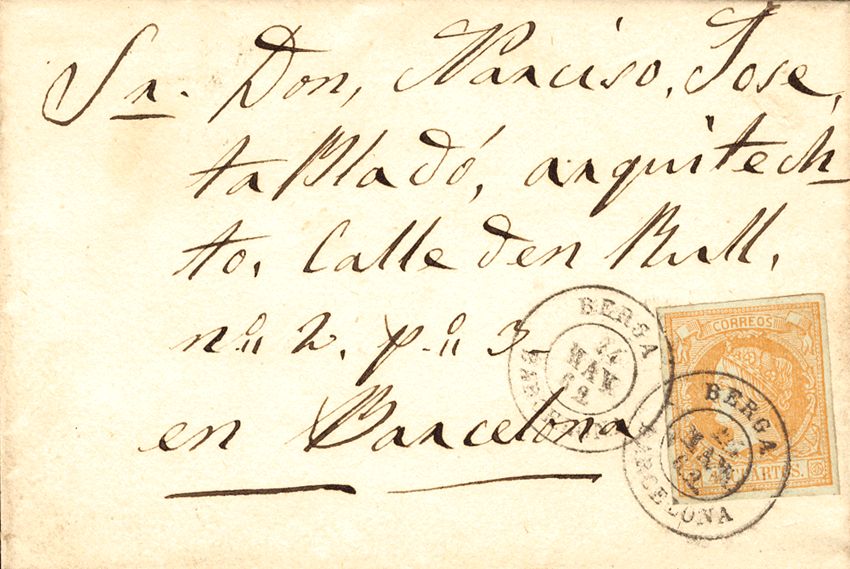 Sr. Don, Narciso, Jose,
ta Bladó, arquitech-
to, Calle den Bull,
nº 2, pº 3
en Barcelona
BERGA
24
MAY
62
BARCELONA
CORREOS
BERGA
24
MAY
62
BARCELONA
4 CUARTOS.